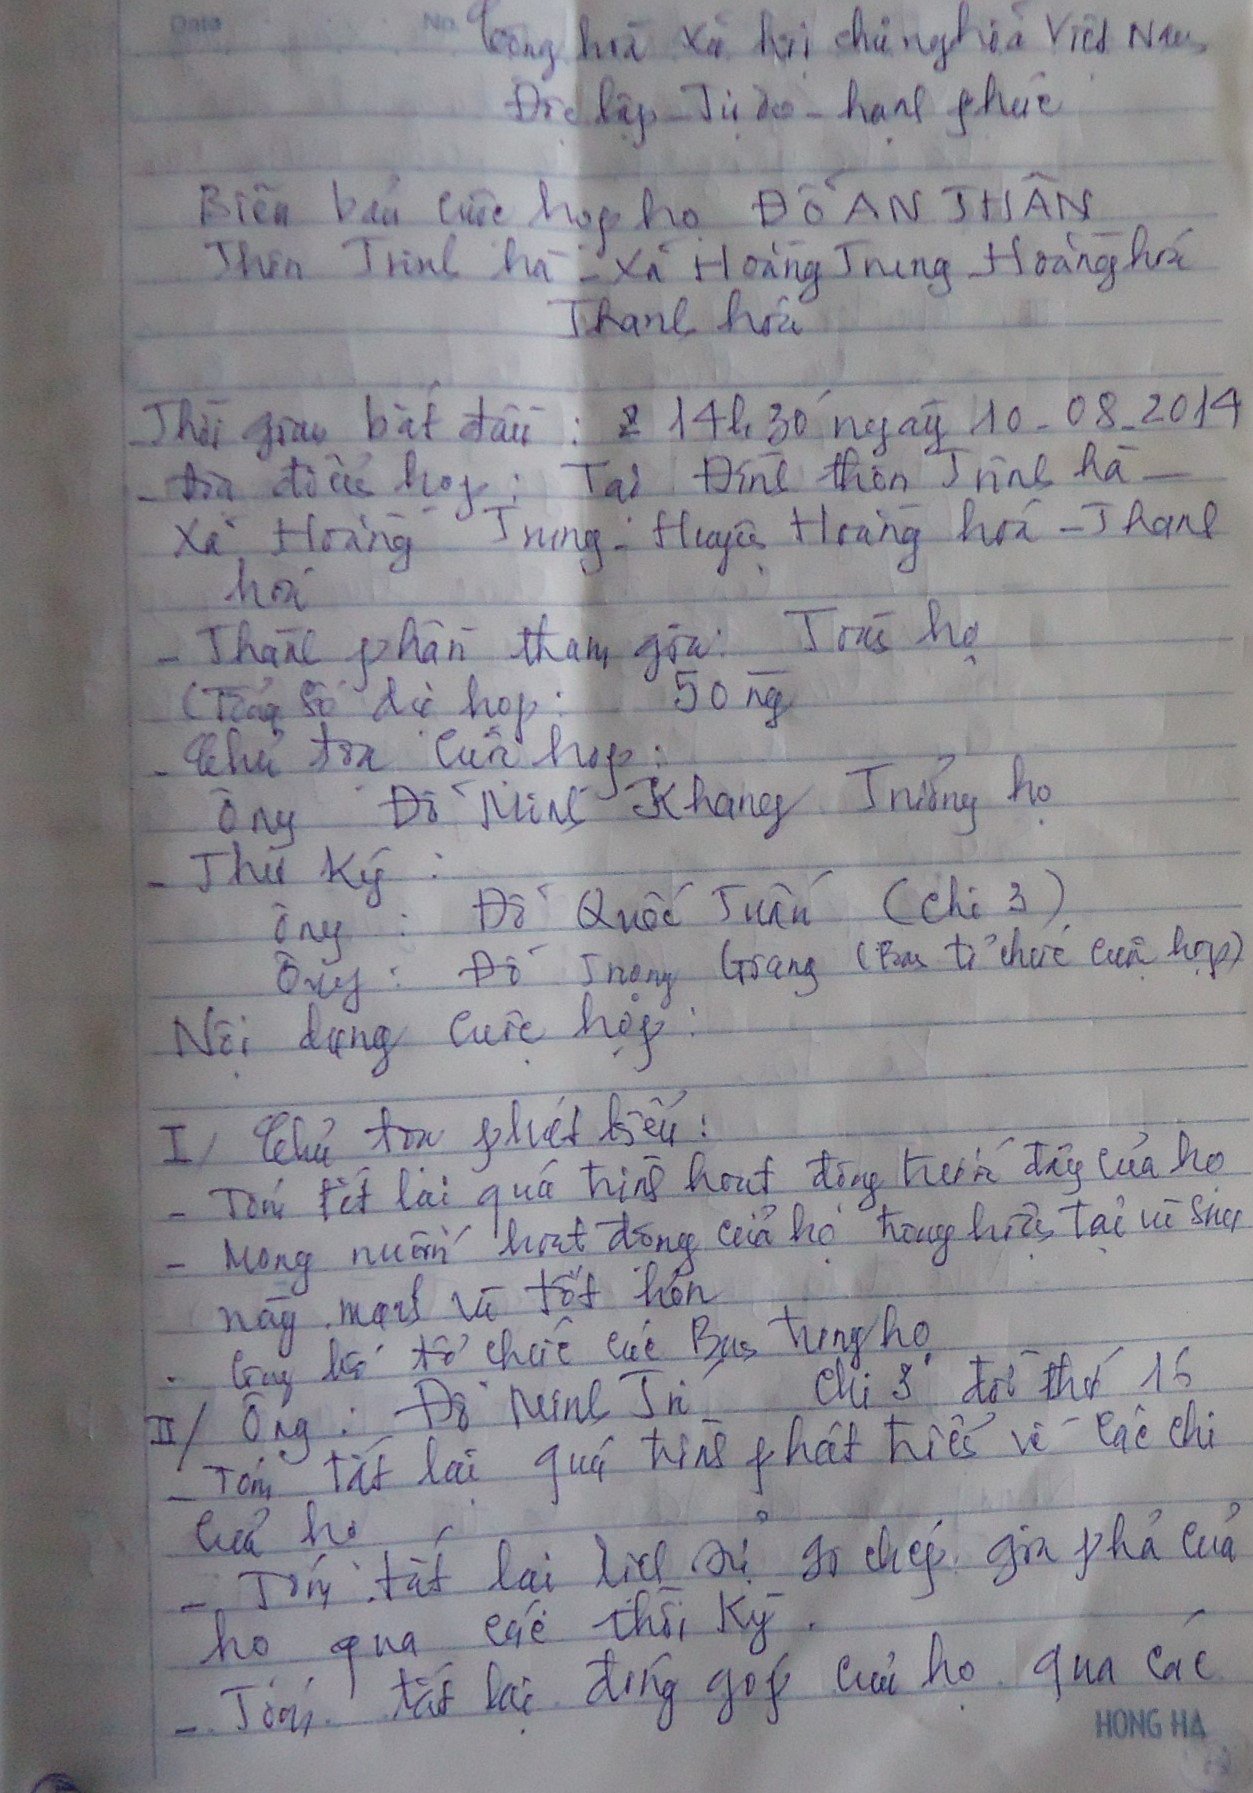 Date No.
Cộng hoà Xã hội chủ nghĩa Việt Nam
Độc lập - Tự do - hạnh phúc
Biên bản cuộc họp họ ĐỖ AN THÂN
Thôn Trinh hà - Xã Hoằng Trung - Hoằng hoá
Thanh hoá
- Thời gian bắt đầu : 14h 30' ngày 10 - 08 - 2014
- địa điểm họp : Tại Đình thôn Trinh hà -
Xã Hoằng Trung - Huyện Hoằng hoá - Thanh
hoá
- Thành phần tham gia : Toàn họ
(Tổng số dự họp : 50 ng
- Chủ toạ cuộc họp :
Ông Đỗ Minh Khang Trưởng họ
- Thư Ký :
Ông : Đỗ Quốc Tuấn (chi 3)
Ông : Đỗ Trọng Giang (Ban tổ chức cuộc họp)
Nội dung cuộc họp :
I/ Chủ toạ phát biểu :
- Tóm tắt lại quá trình hoạt động trước đây của họ
- Mong muốn hoạt động của họ trong hiện tại và sau
này mạnh và tốt hơn
- Công bố tổ chức các Ban trong họ
II/ Ông : Đỗ Minh Trí chi 3 đời thứ 16
- Tóm tắt lại quá trình phát triển về các chi
của họ
- Tóm tắt lại lịch sử ghi chép gia phả của
họ qua các thời Kỳ .
- Tóm tắt lại đóng góp của họ qua các
HONG HA